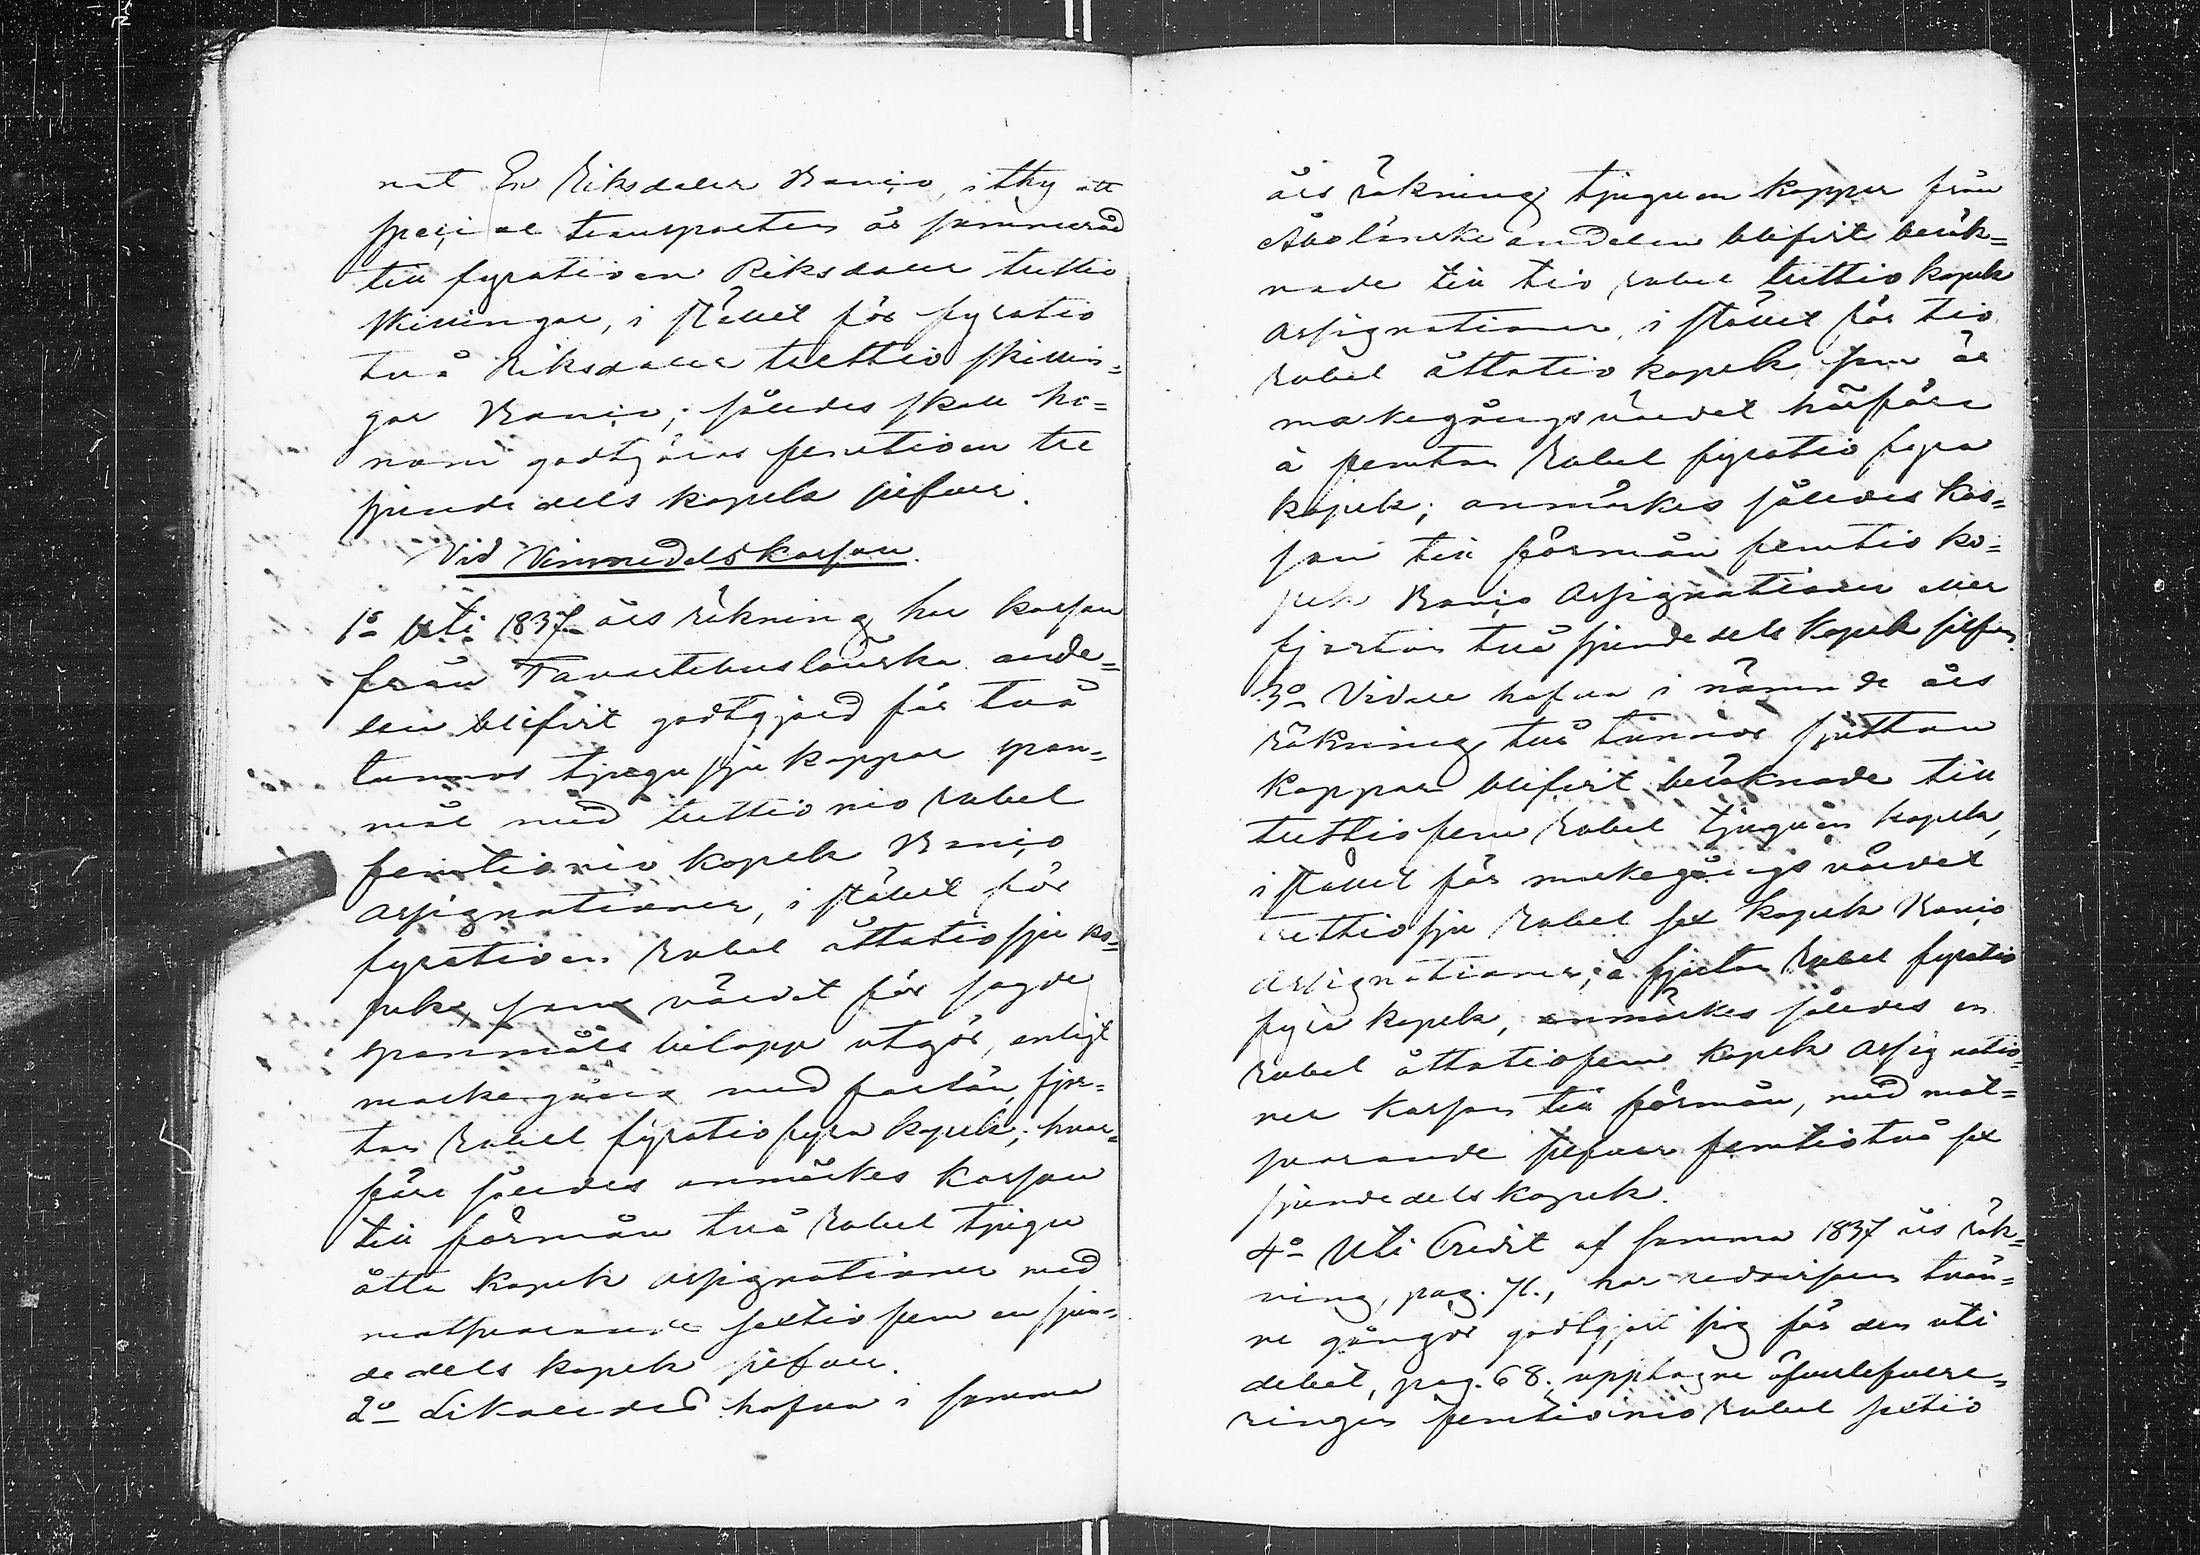 nat En Riksdaler Banco, ithy att
special transporten är summerad
till fyratioen Riksdaler trettio
skillingar, i stället för fyratio
två Riksdaler trettio skillin=
gar Banco; således skall ho=
nom godtgöras femtioen tre
sjundedels kopek silfver.
Vid Vinmedelskassan.
1o Uti 1837 års räkning har kassan
från Tavastehuslänska ande=
len blifvit godtgjord för två
tunnor tjugusju kappar span=
mål med trettionio rubel
femtionio kopek Banco
assignationer, i stället för
fyratioen Rubel åttatiosju ko=
pek, som värdet för sagde
spanmåls belopp utgör, enligt
markegång med forlön, fjor=
ton Rubel fyratiofyra kopek; hvar=
före således anmärkes kassan
till förmån två Rubel tjugu
åtta kopek assignationer med
motsvarande sextiofem en sjun=
dedels kopek silfver.
2o Likaledes hafva i samma
års räkning tjuguen kappar från
Åbolänska andelen blifvit beräk=
nade till tio rubel trettio kopek
assignationer, i stället för tio
rubel åttatio kopek, som är
markegångsvärdet härföre
à femton Rubel fyratiofyra
kopek; anmärkes således kas=
san till förmån femtio ko=
pek Banco Assignationer eller
fjorton två sjundedels kopek silfver.
3o Vidare hafva i nämnde års
räkning två tunnor sjutton
kappar blifvit beräknade till
trettiofem Rubel tjuguen kopek,
i stället för markegångs värdet
trettiosju Rubel sex kopek Banco
Assignationer, à fjorton Rubel fyratio
fyra kopek, anmärkes således en
rubel åttatiofem kopek assignatio=
ner kassan till förmån, med mot=
svarande silfver femtiotvå sex
sjundedels kopek.
4o Uti Credit af samma 1837 års räk=
ning, pag. 71., har redovisaren tvän=
ne gångor godtgjort sig för den uti
debet, pag. 68. upptagne öfverlefvere=
ringen femtionio rubel sextio